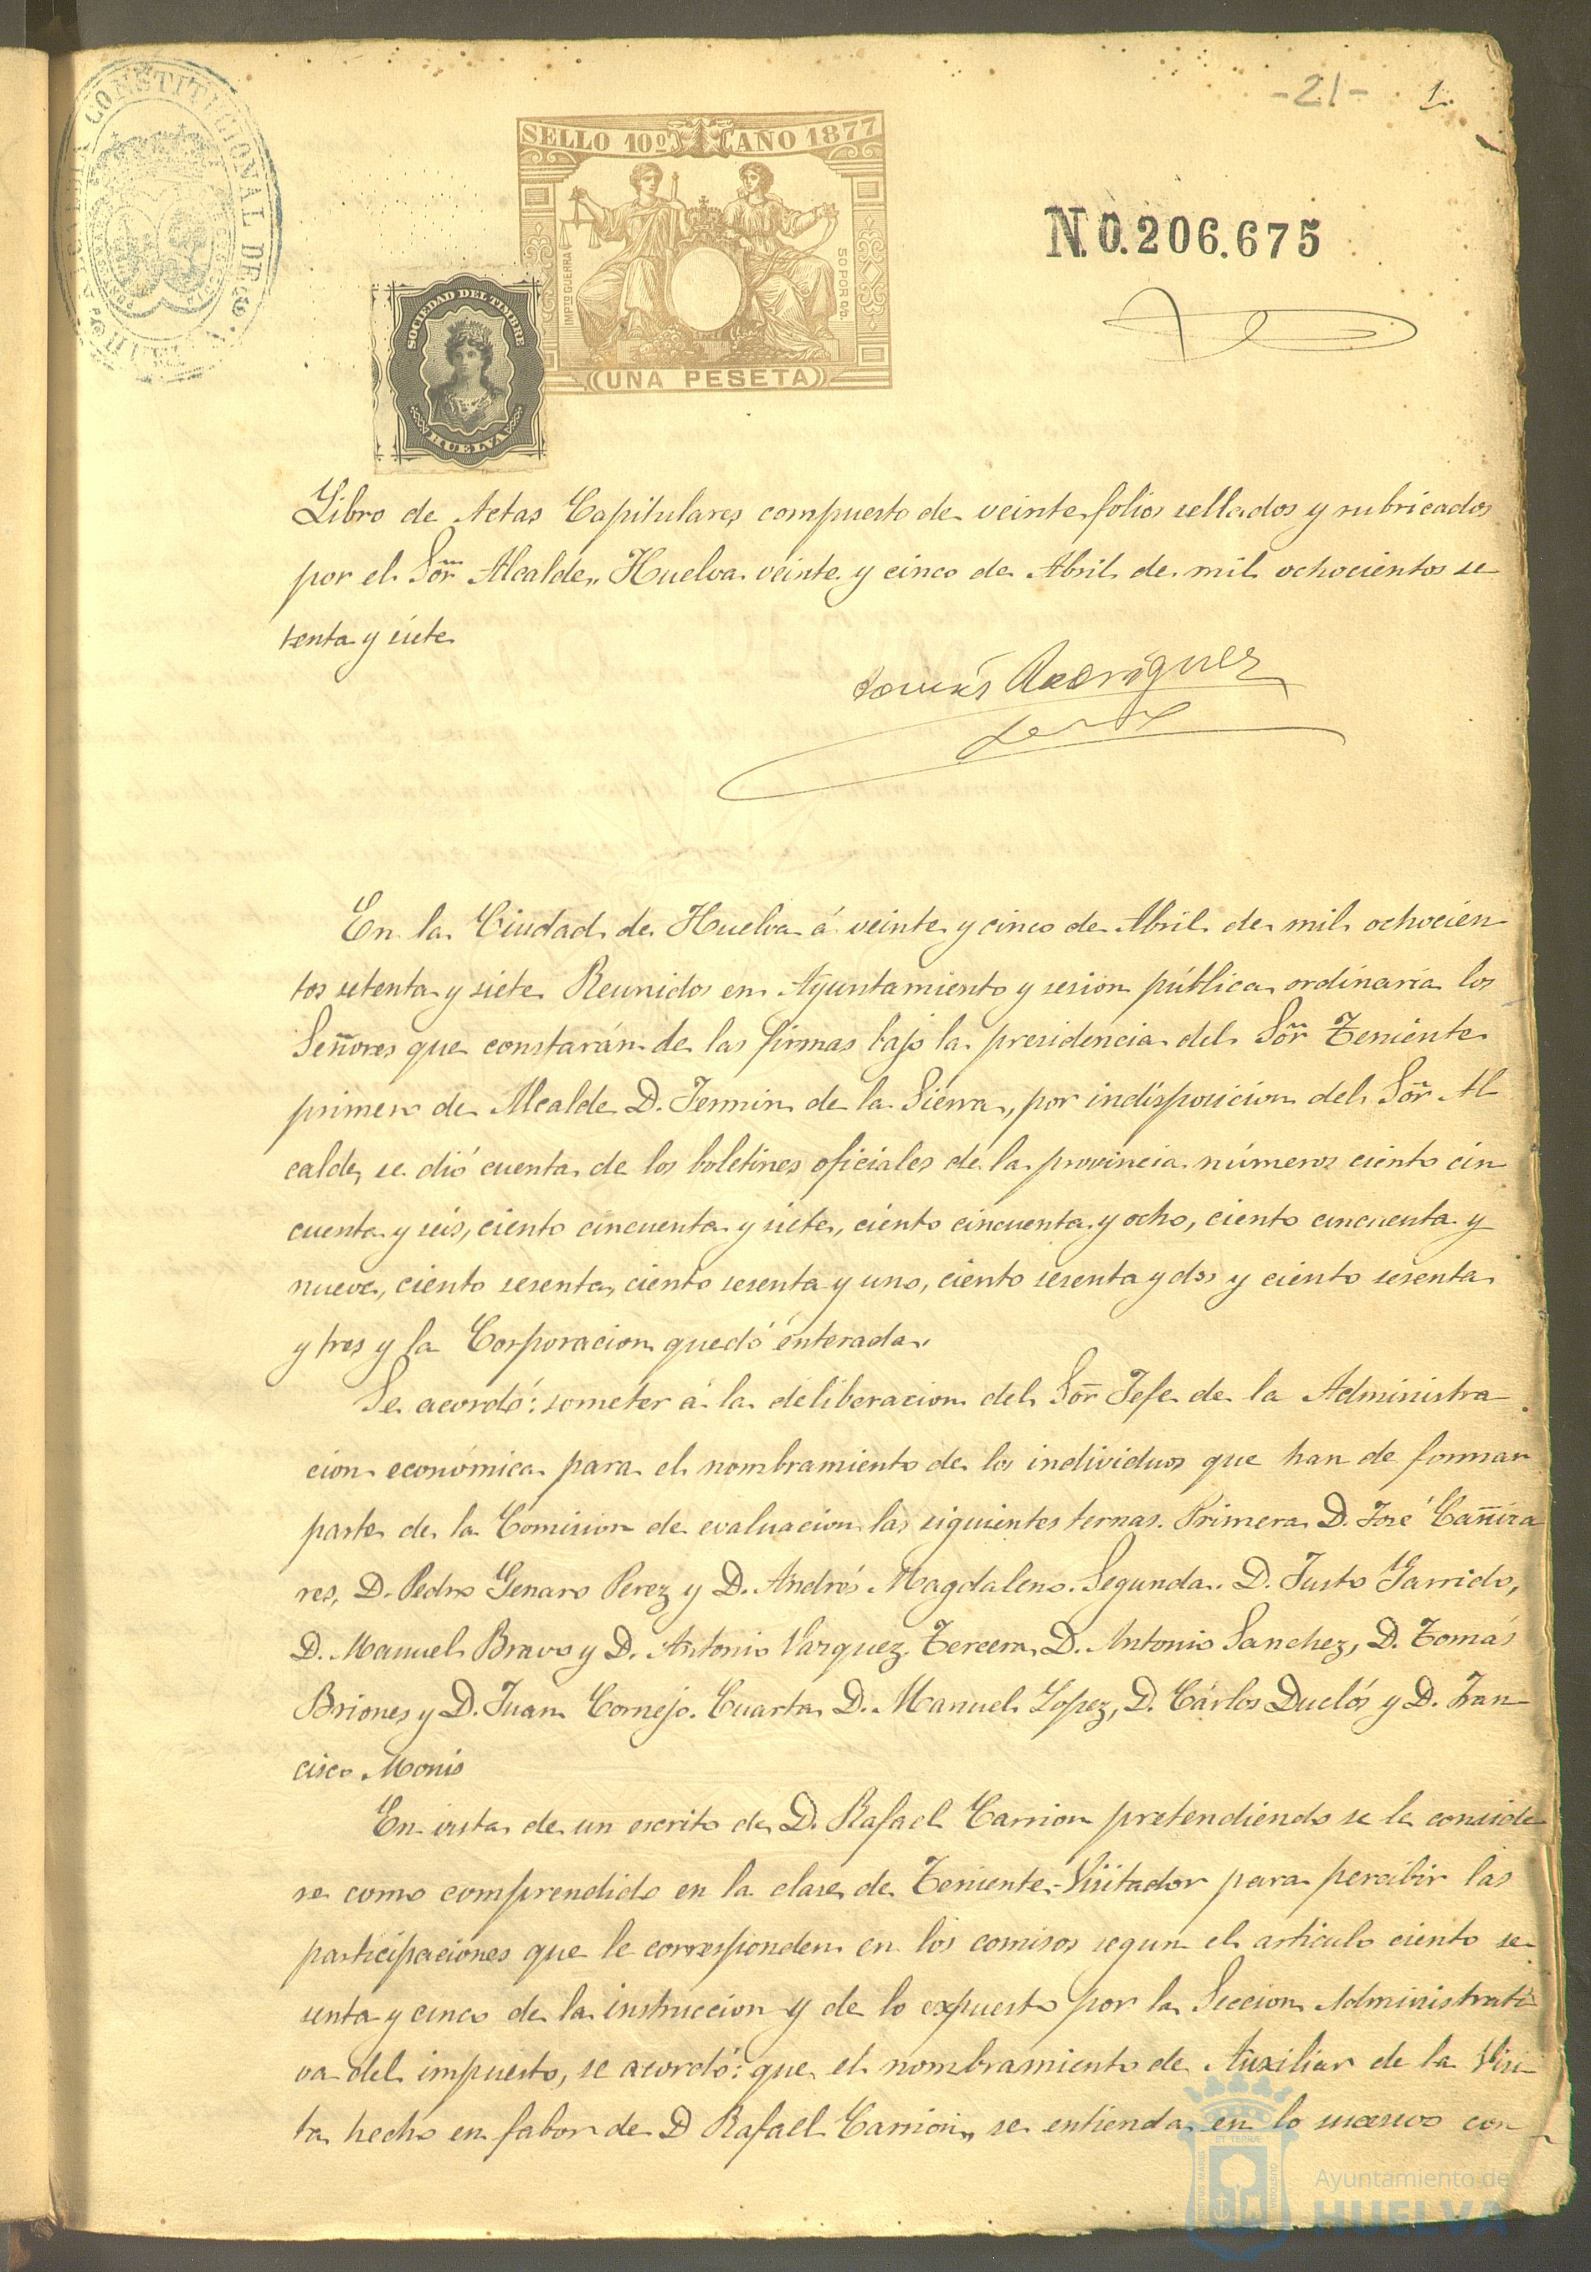 -21- 1.
ALCALDIA CONSTITUCIONAL DE HUELVA
SELLO 10º AÑO 1877
IMPTO GUERRA
50 POR 0/0.
UNA PESETA
N.0.206.675
SOCIEDAD DEL TIMBRE
HUELVA
Libro de Actas Capitulares compuesto de veinte folios sellados y rubricados
por el Sõr Alcalde,, Huelva veinte y cinco de Abril de mil ochocientos se
tenta y siete
Tomás Rodriguez
En la Ciudad de Huelva á veinte y cinco de Abril de mil ochocien
tos setenta y siete Reunidos en Ayuntamiento y sesion pública ordinaria los
Señores que constarán de las firmas bajo la presidencia del Sõr Teniente
primero de Alcalde D. Fermin de la Sierra, por indisposicion del Sõr Al
calde, se dió cuenta de los boletines oficiales de la provincia números ciento cin
cuenta y seis, ciento cincuenta y siete, ciento cincuenta y ocho, ciento cincuenta y
nueve, ciento sesenta, ciento sesenta y uno, ciento sesenta y dos y ciento sesenta
y tres y la Corporacion quedó enterada.
Se acordó: someter á la deliberacion del Sõr Jefe de la Administra
cion económica para el nombramiento de los individuos que han de formar
parte de la Comision de evaluacion las siguientes ternas. Primera D. José Cañiza
res, D. Pedro Genaro Perez y D. Andrés Magdaleno. Segunda. D. Justo Garrido,
D. Manuel Bravo y D. Antonio Vazquez. Tercera, D. Antonio Sanchez, D. Tomás
Briones y D. Juan Cornejo. Cuarta D. Manuel Lopez, D. Cárlos Duclós y D. Fran
cisco Monis
En vista de un escrito de D. Rafael Carrion pretendiendo se le conside
re como comprendido en la clase de Teniente-Visitador para percibir las
participaciones que le corresponden en los comisos segun el articulo ciento se
senta y cinco de la instruccion y de lo expuesto por la Seccion Administrati
va del impuesto, se acordó: que el nombramiento de Auxiliar de la Visi
ta hecho en fabor de D Rafael Carrion,, se entienda en lo sucesivo con
Ayuntamiento de
HUELVA